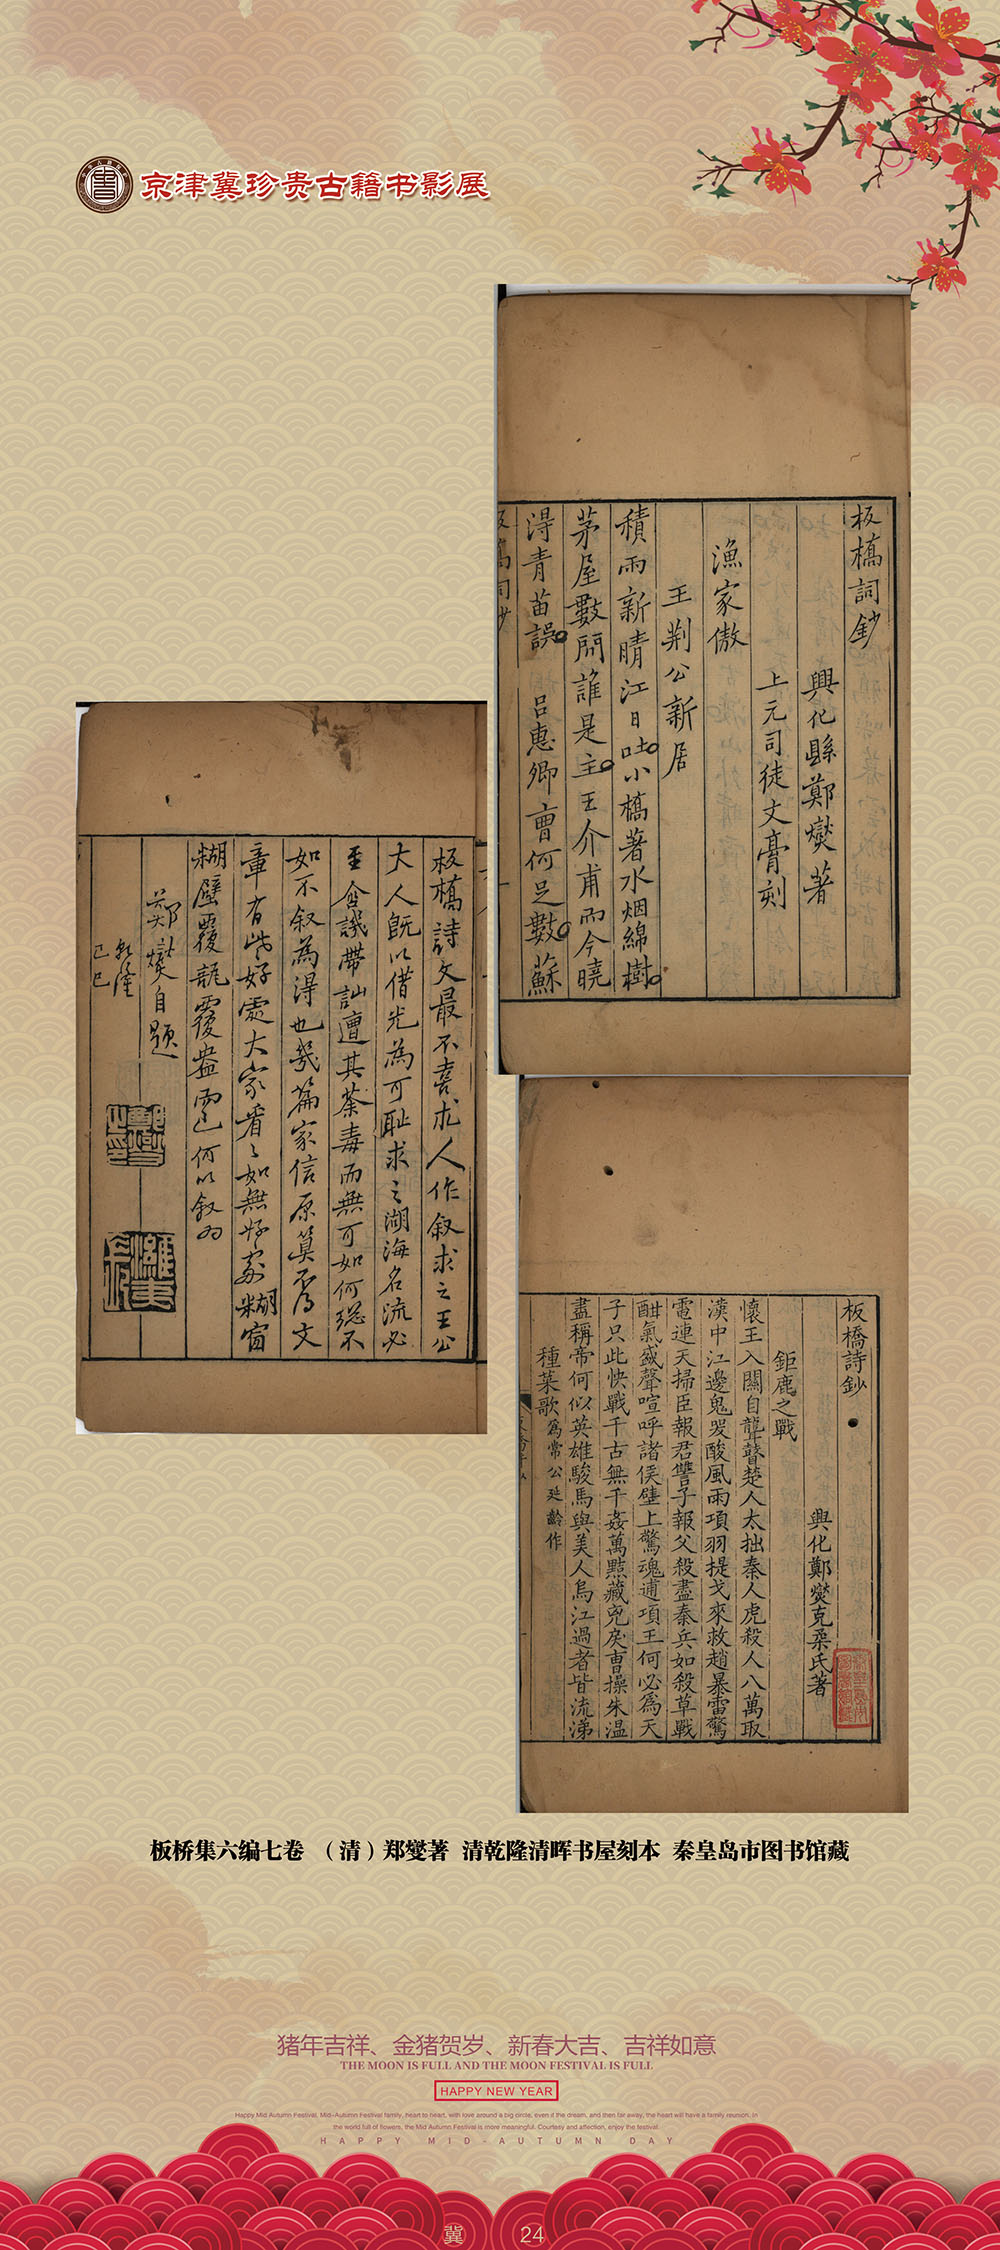 京津冀珍贵古籍书影展
板橋詞鈔
興化縣鄭燮著
上元司徒文膏刻
漁家傲
王荆公新居
積雨新晴江日吐小橋著水烟綿樹
茅屋數間誰是主王介甫而今曉
得青苗誤 呂惠卿曹何足數蘇
板橋詩文最不喜求人作叙求之王公
大人既以借光為可耻求之湖海名流必
至含譏帶訕遭其荼毒而無可如何總不
如不叙為得也幾篇家信原算不得文
章有些好處大家看看如無好處糊窗
糊壁覆瓿覆盎而已何以叙為
鄭燮自題
乾隆
己巳
板橋詩鈔
興化鄭燮克柔氏著
鉅鹿之戰
懷王入關自聾瞽楚人太拙秦人虎殺人八萬取
漢中江邊鬼哭酸風雨項羽提戈來救趙暴雷驚
電連天掃臣報君讐子報父殺盡秦兵如殺草戰
酣氣盛聲喧呼諸侯壁上驚魂逋項王何必為天
子只此快戰千古無千姦萬黠藏兇戾曹操朱温
盡稱帝何似英雄駿馬與美人烏江過者皆流涕
種菜歌為常公延齡作
板桥集六编七卷 （清）郑燮著 清乾隆清晖书屋刻本 秦皇岛市图书馆藏
猪年吉祥、金猪贺岁、新春大吉、吉祥如意
THE MOON IS FULL AND THE MOON FESTIVAL IS FULL
HAPPY NEW YEAR
Happy Mid Autumn Festival, Mid-Autumn Festival family, heart to heart, with love around a big circle, even if the dream, and then far away, the heart will have a family reunion. In
the world full of flowers, the Mid Autumn Festival is more meaningful. Courtesy and affection, enjoy the festival.
HAPPY MID-AUTUMN DAY
冀 24